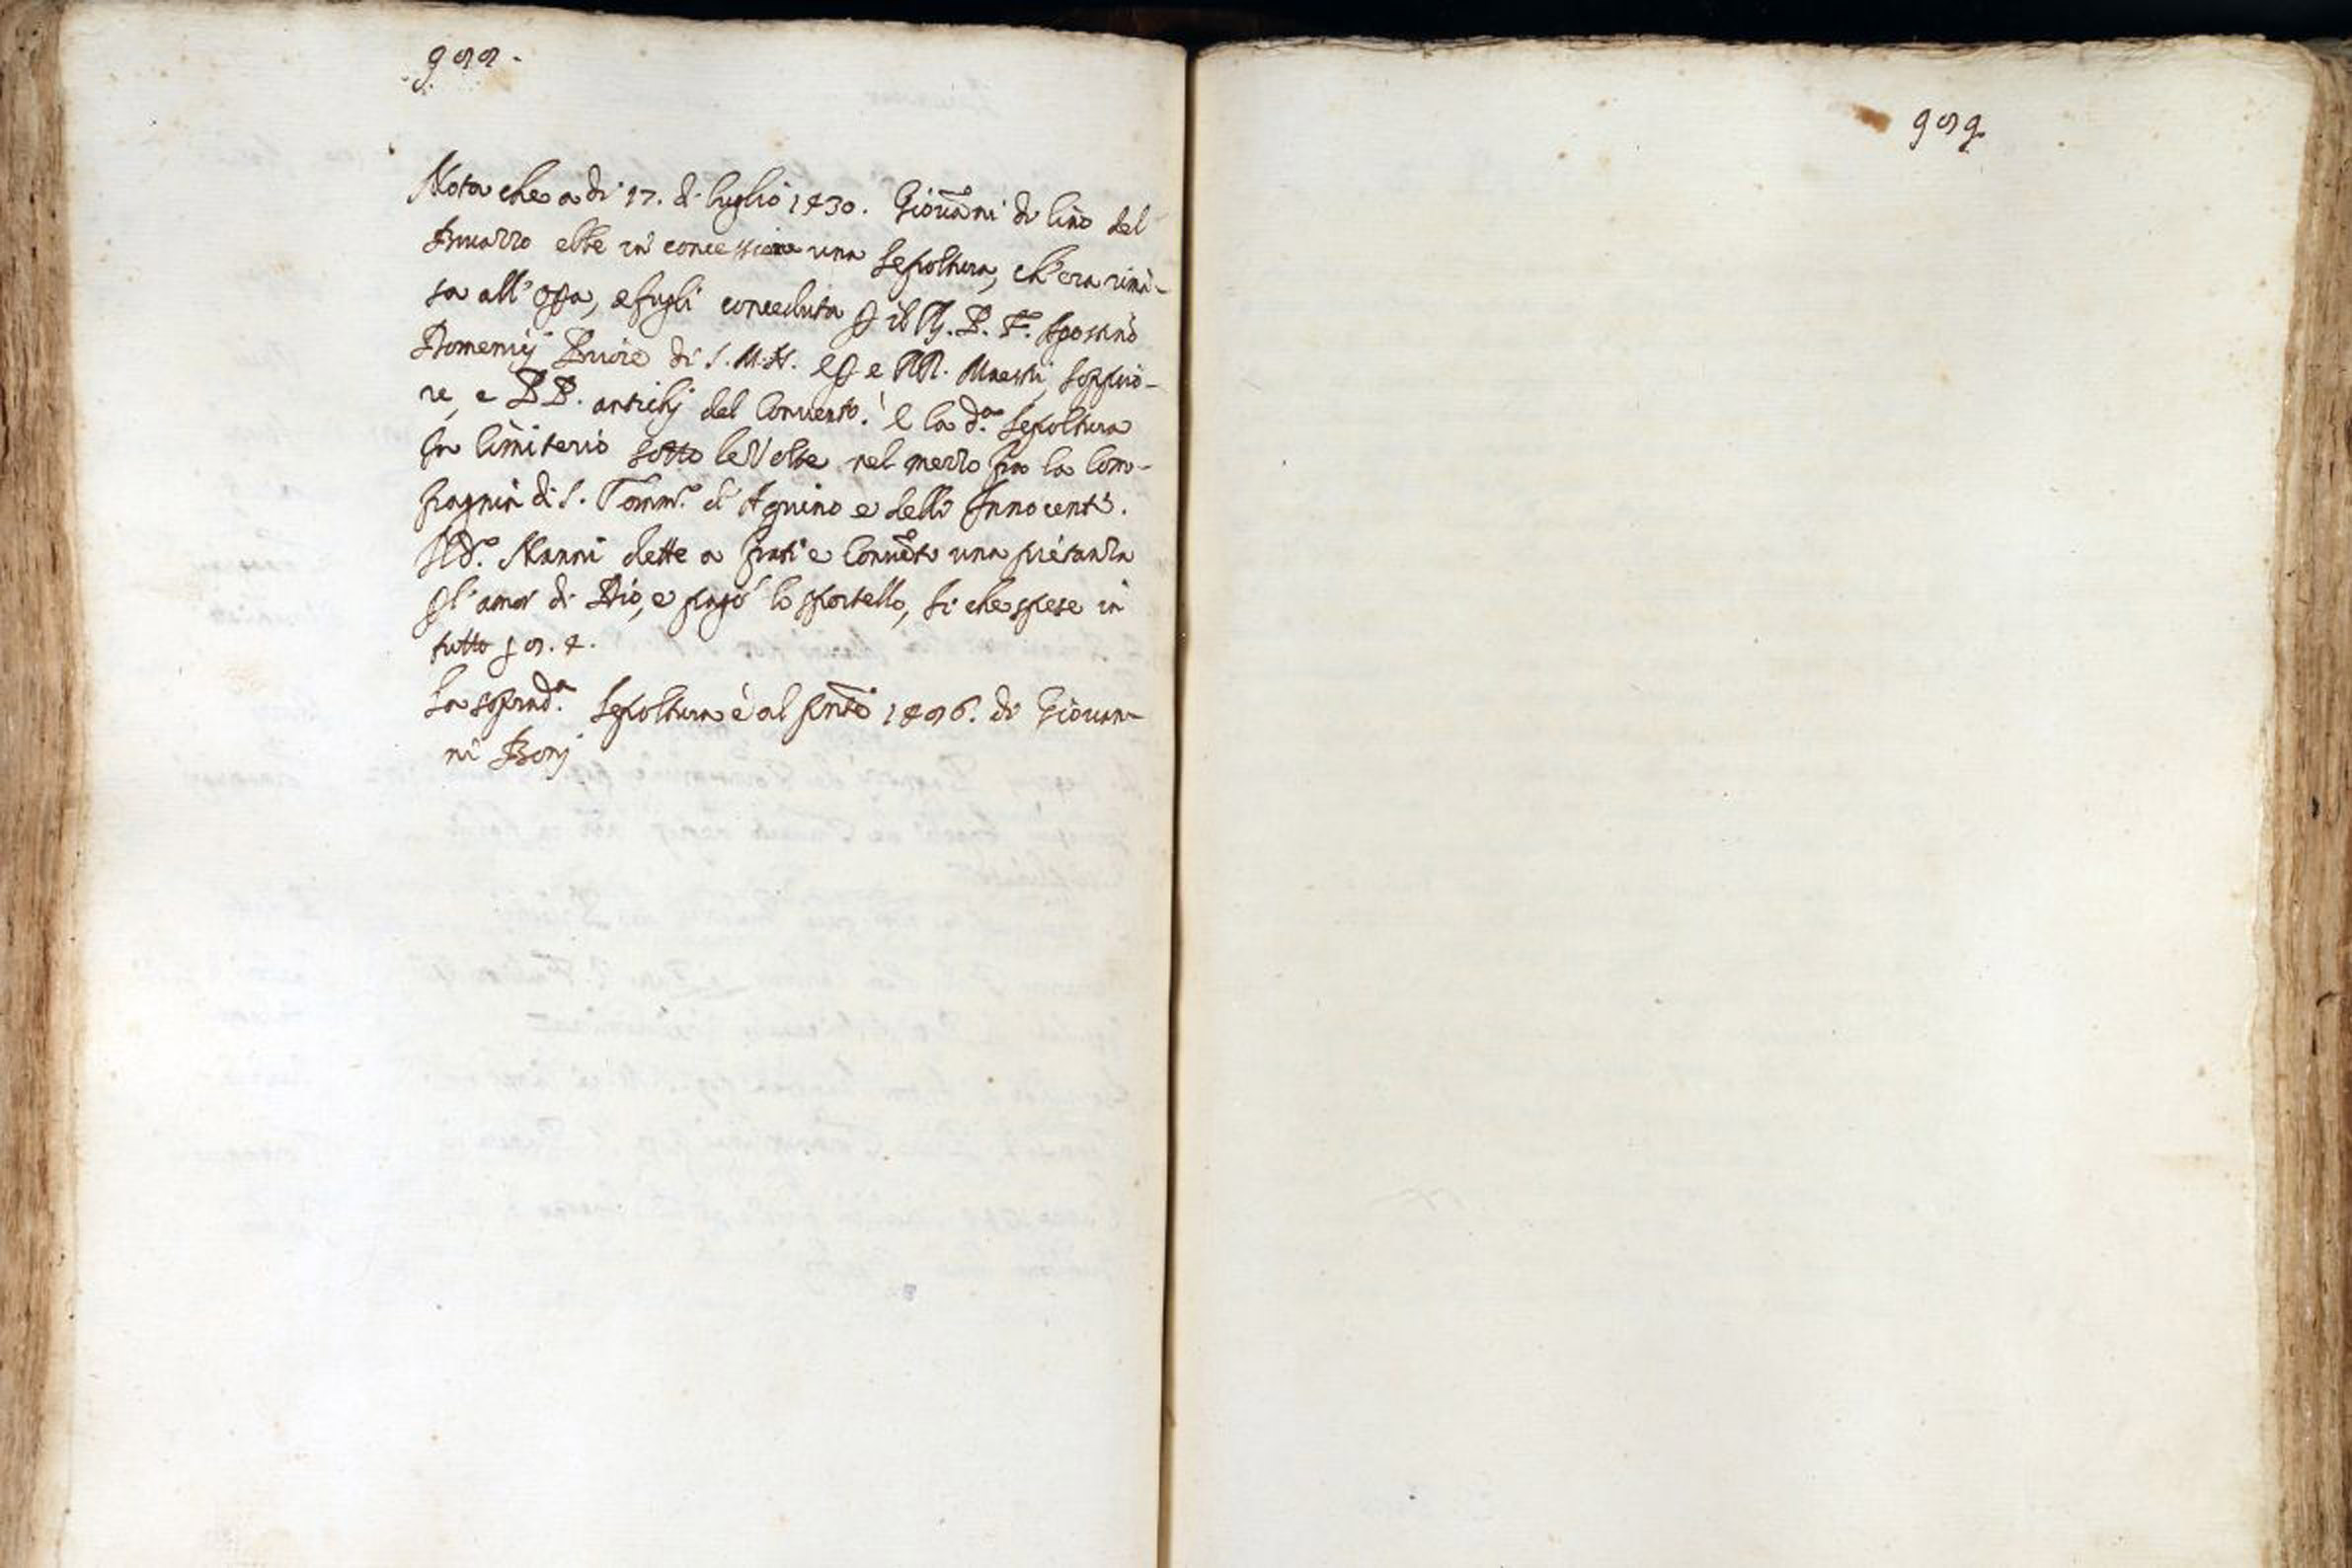 Nota che a di 17. di luglio 1430. Giovãni di Cino del
ebbe in concessione una sepoltura, ch'era rima-
sa all'opa, e fugli conceduta p il R. P. F. Agostino
Domenicj Priore di S. M. N. e p e RR. Maestri, Sopprio-
re, e PP. antichj del Convento. E la d.ª sepoltura
In Cimiterio sotto le Volte nel mezzo fra la Com-
pagnia di S. Tomm.º d'Aquino e delli Innocenti.
Il d.º Nanni dette a frati e Convẽto una pietanza
p l'amor di Dio, e pagò lo sportello, si che spese in
tutto
La soprad.ª sepoltura è al pñte di Giovan-
ni Bonj